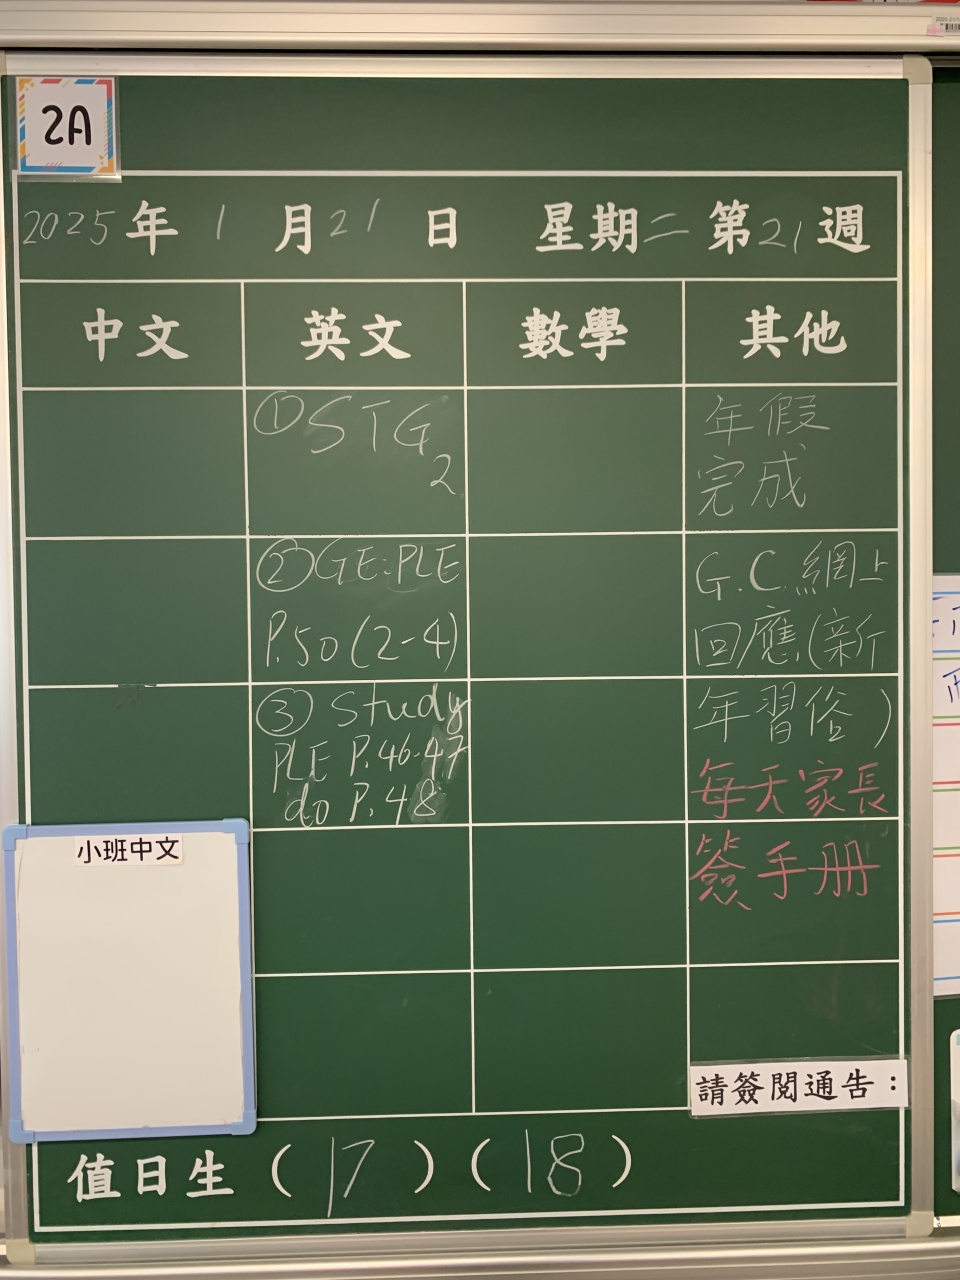 2A
2025年1月21日 星期二 第21週
中文 英文 數學 其他
①STG
2
②GE:PLE
P.50(2-4)
③ Study
PLE P.46-47
do P.48
年假
完成
G.C.網上
回應(新
年習俗)
每天家長
簽手册
小班中文
請簽閱通告：
值日生(17)(18)